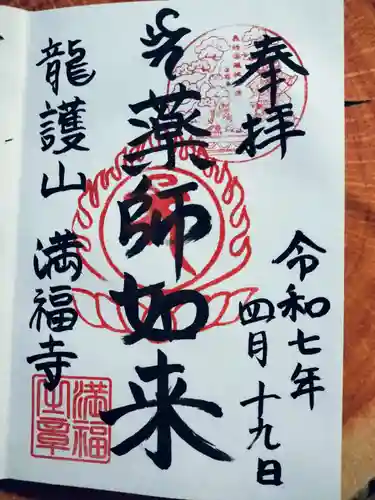 奉拝
令和七年
四月十九日
薬師如来
龍護山 満福寺
満福
主章